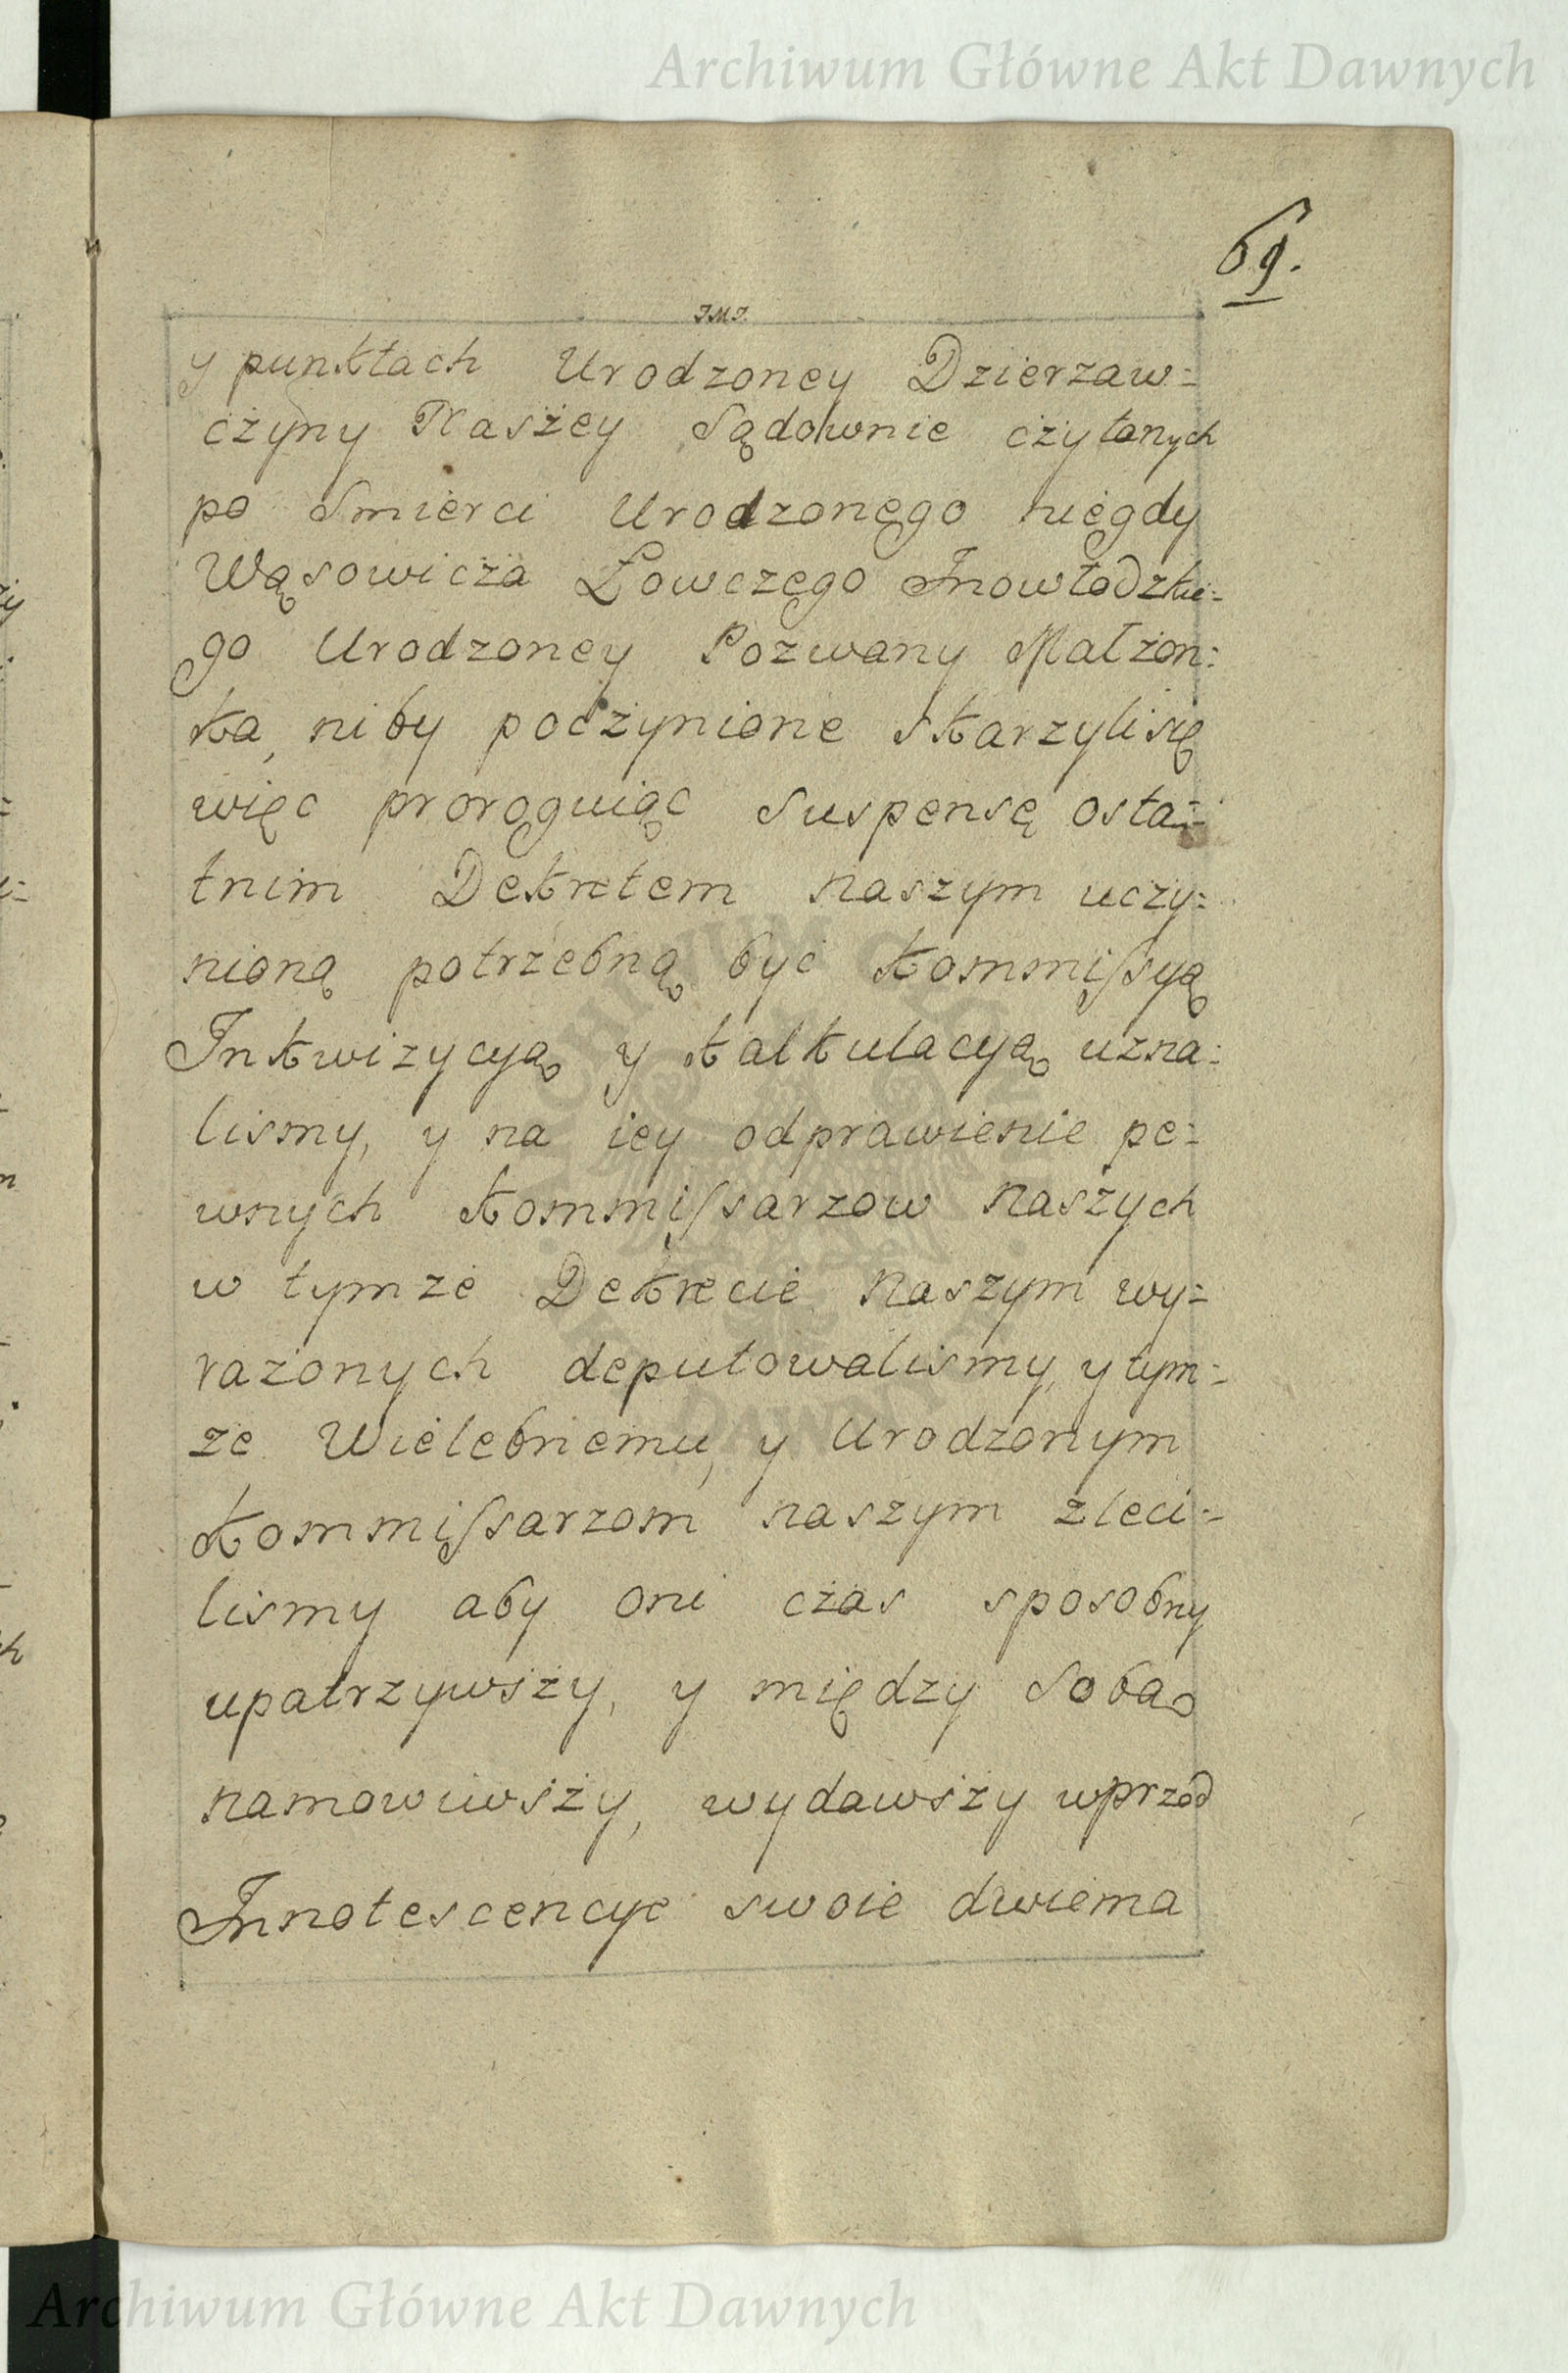 Archiwum Główne Akt Dawnych
69.
JMJ.
y punktach Urodzoney Dzierzaw=
czyny Naszey Sądownie czytanych
po Smierci Urodzonego niegdy
Wąsowicza Łowczego Inowłodzkie=
go Urodzoney Pozwany Małzon=
ka, niby poczynione skarzyli się
więc proroguiąc Suspensę osta=
tnim Dekretem naszym uczy=
nioną potrzebną być kommissyą
Inkwizycyą y kalkulacyą uzna=
lismy, y na iey odprawienie pe=
wnych kommissarzow naszych
w tymze Dekrecie naszym wy=
razonych deputowalismy, y tym=
ze Wielebnemu, y Urodzonym
kommissarzom naszym zleci=
lismy aby oni czas sposobny
upatrzywszy, y między Sobą
namowiwszy, wydawszy wprzód
Innotescencye swoie dwiema
Archiwum Główne Akt Dawnych